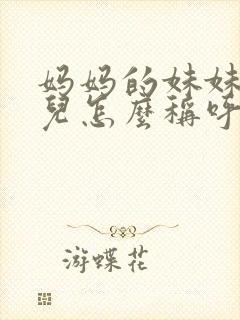 妈妈的妹妹
兒怎麼稱呼
游蝶花